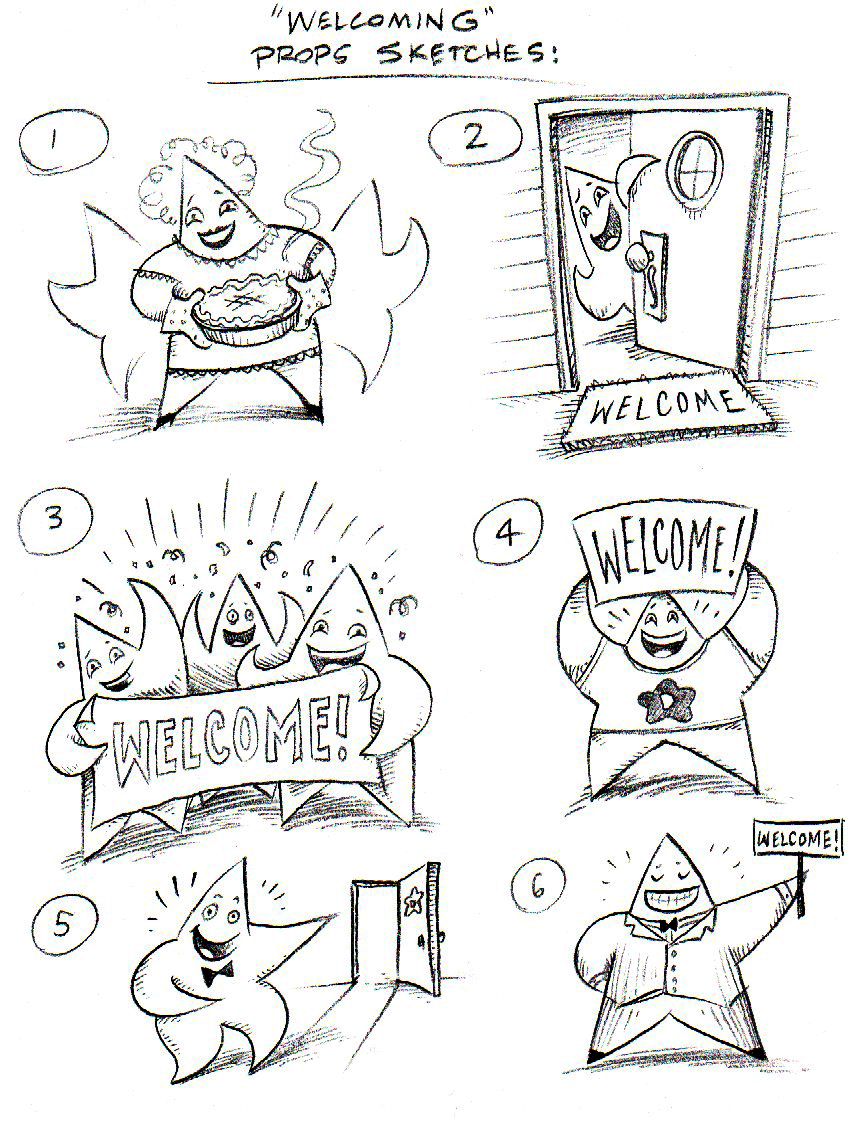 "WELCOMING"
PROPS SKETCHES:
1
2
WELCOME
3
WELCOME!
4
WELCOME!
5
6
WELCOME!